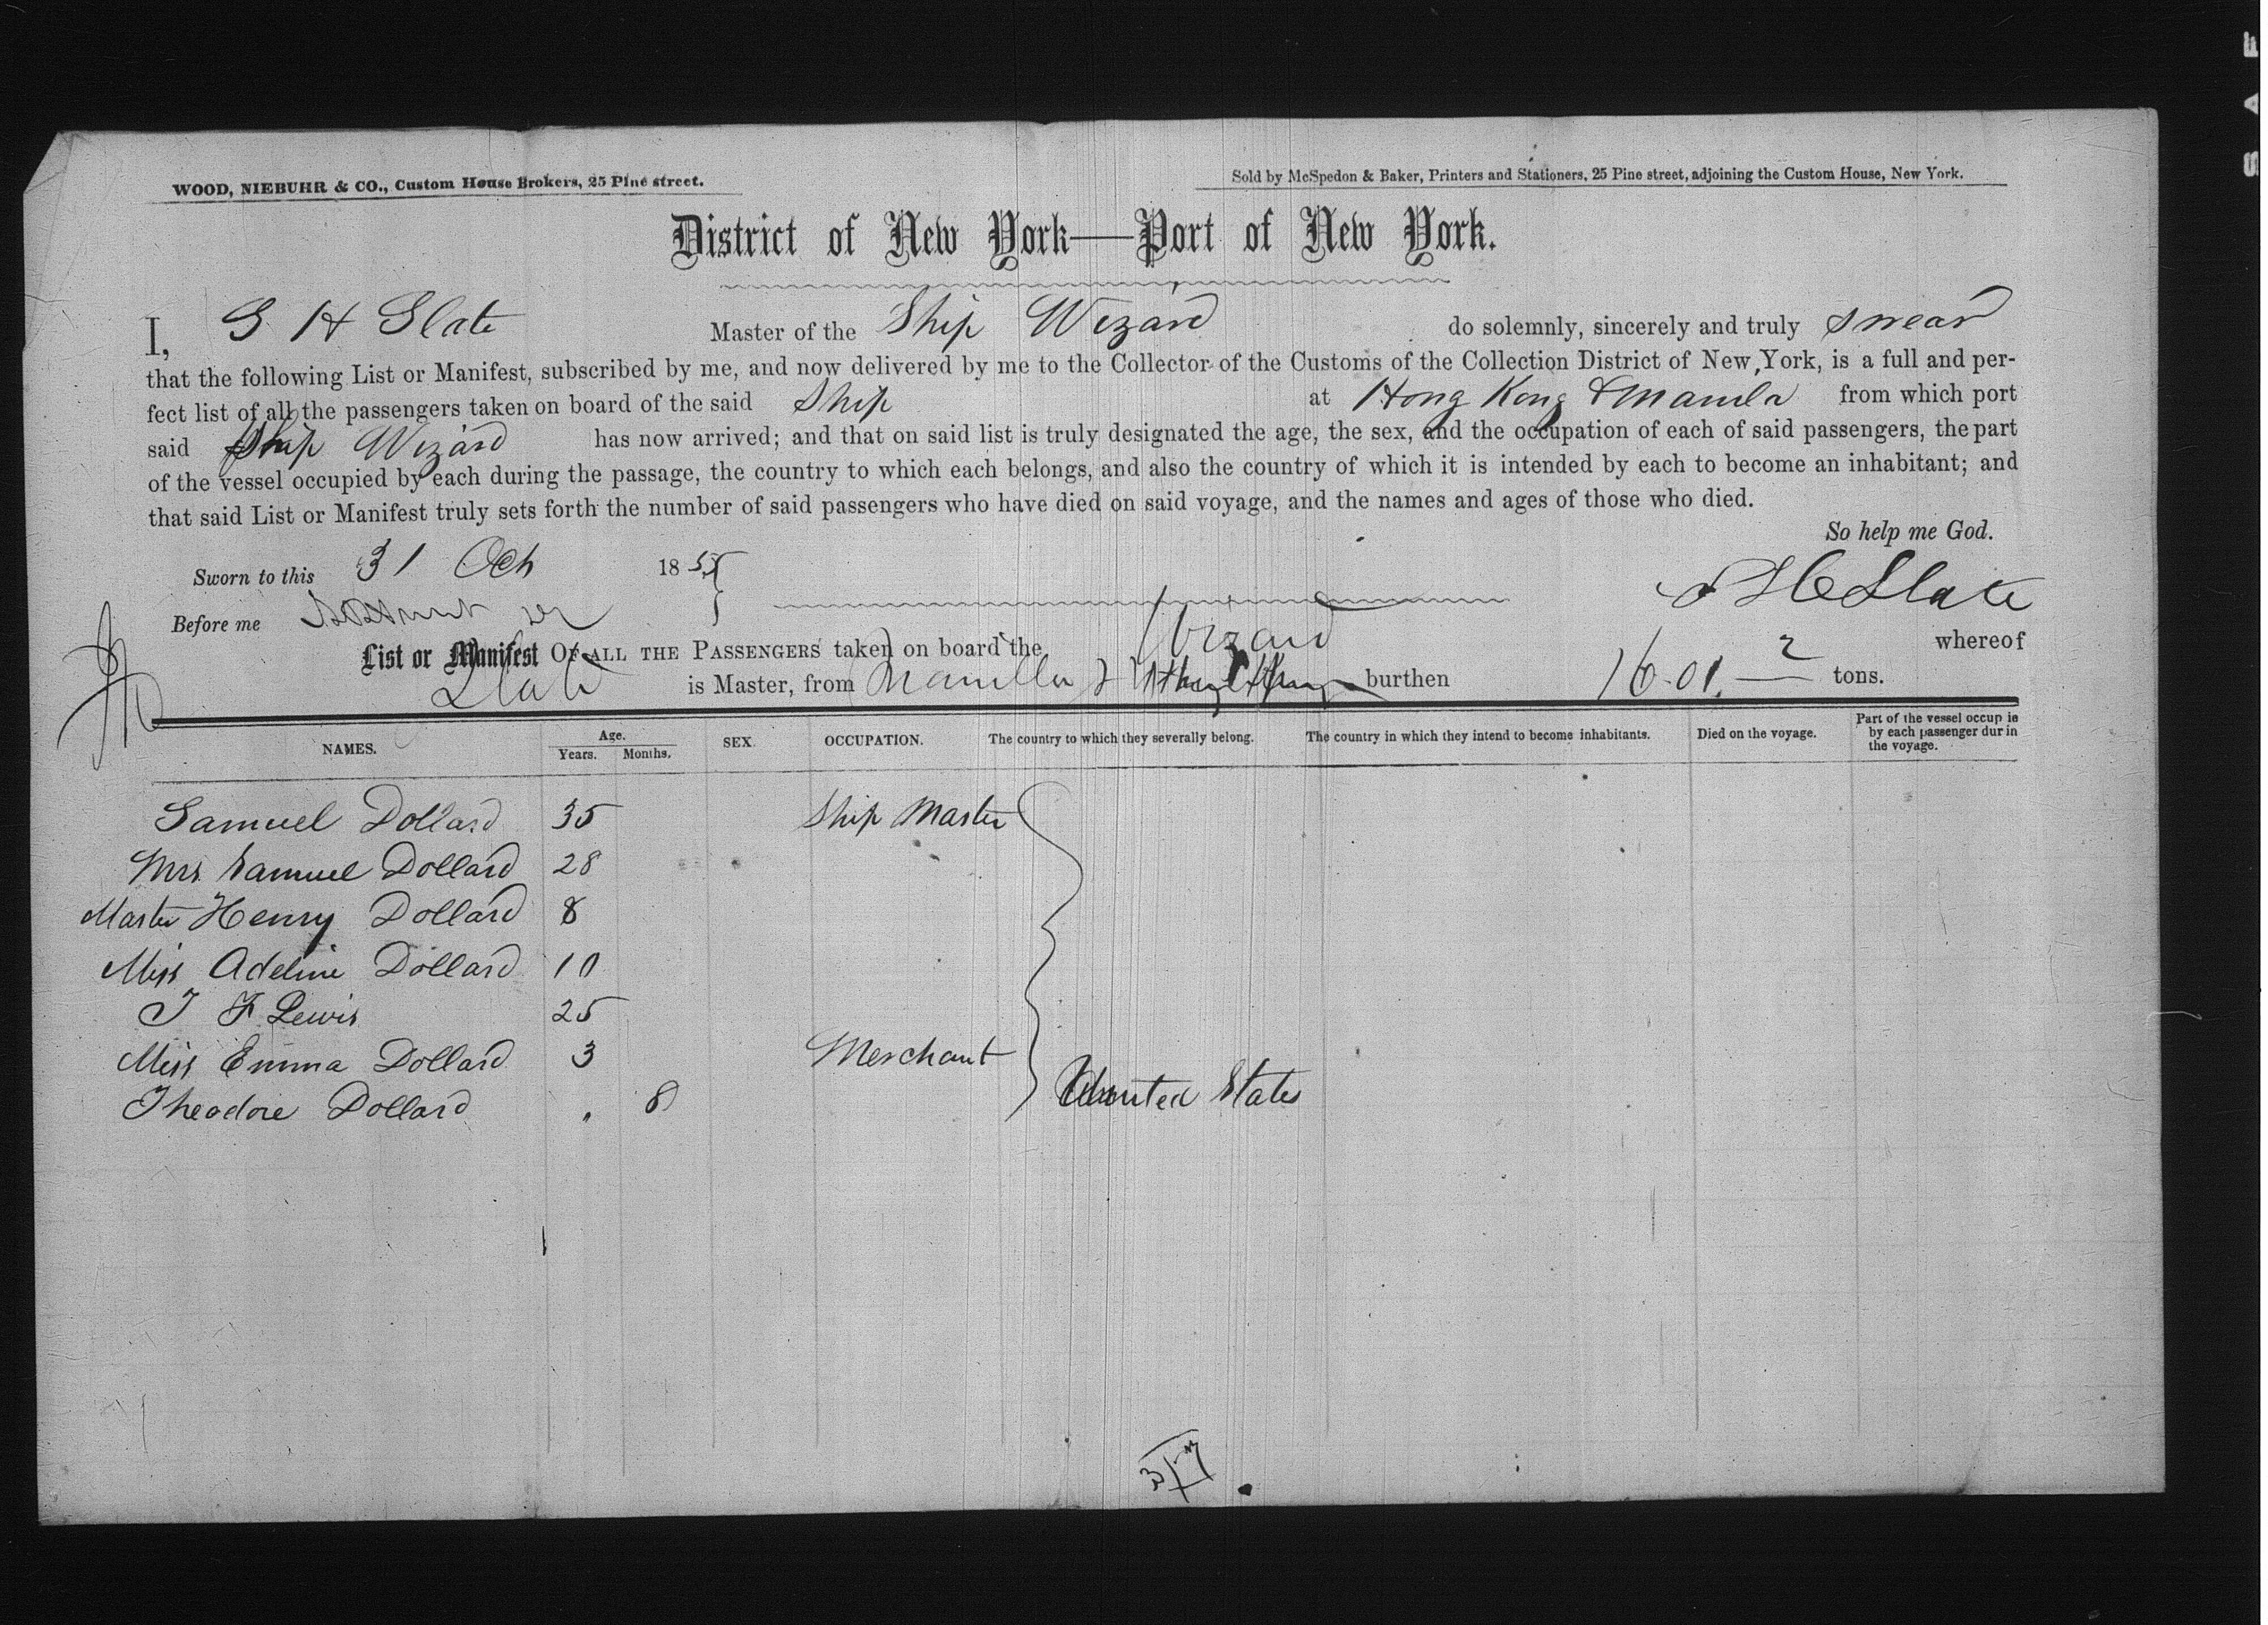 WOOD, NIEBUHR & CO., Custom House Brokers, 25 Pine street.
Sold by McSpedon & Baker, Printers and Stationers, 25 Pine street, adjoining the Custom House, New York.
District of New York—Port of New York.
I, G H Slate Master of the Ship Wizard do solemnly, sincerely and truly swear
that the following List or Manifest, subscribed by me, and now delivered by me to the Collector of the Customs of the Collection District of New York, is a full and per-
fect list of all the passengers taken on board of the said Ship at Hong Kong & Manila from which port
said Ship Wizard has now arrived; and that on said list is truly designated the age, the sex, and the occupation of each of said passengers, the part
of the vessel occupied by each during the passage, the country to which each belongs, and also the country of which it is intended by each to become an inhabitant; and
that said List or Manifest truly sets forth the number of said passengers who have died on said voyage, and the names and ages of those who died.
So help me God.
Sworn to this 31 Oct 1855
Slate
Before me
List or Manifest OF ALL THE PASSENGERS taken on board the Wizard whereof
Slate is Master, from Manilla & burthen 1601 2 tons.
NAMES. Age. Years. Months. SEX. OCCUPATION. The country to which they severally belong. The country in which they intend to become inhabitants. Died on the voyage. Part of the vessel occup ie by each passenger dur in the voyage.
Samuel Dollard 35 Ship Master
Mrs Samuel Dollard 28
Master Henry Dollard 8
Miss Adeline Dollard 10
J F Lewis 25
Miss Emma Dollard 3 Merchant
Theodore Dollard " 8 United States
SAF